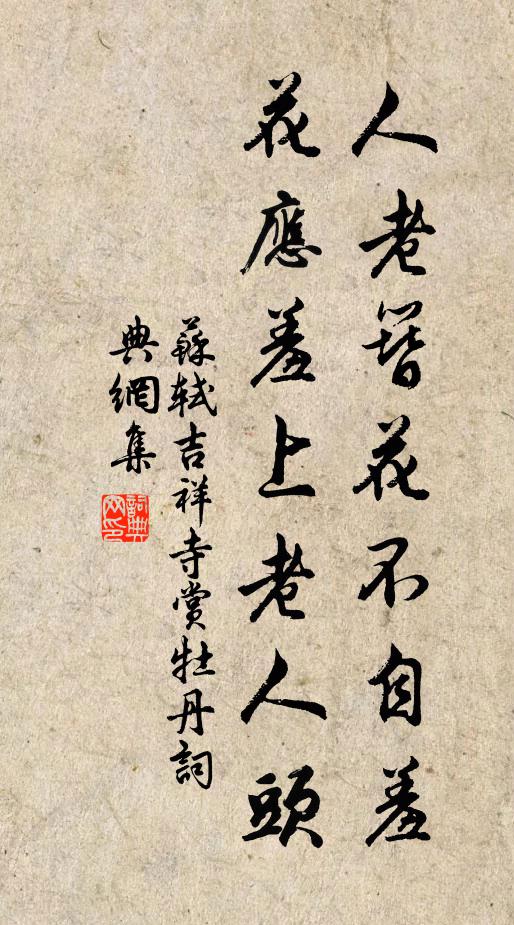 人老簪花不自羞
花應羞上老人頭
蘇軾吉祥寺賞牡丹詞
典網集
詞典网印